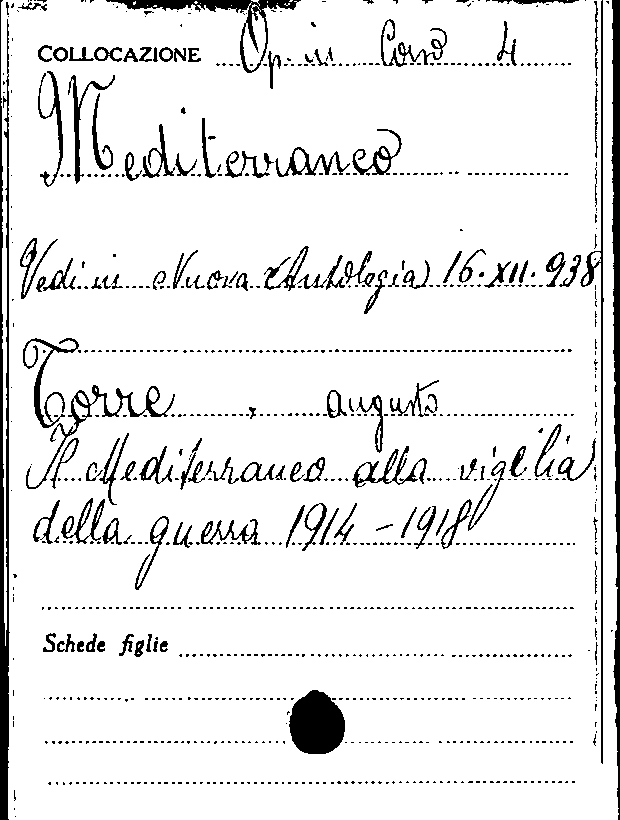 COLLOCAZIONE Op. in Corso 4
Mediterraneo
Vedi in Nuova Antologia 16.XII.938
Torre, Augusto
Il Mediterraneo alla vigilia
della guerra 1914-1918
Schede figlie